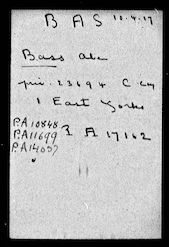 B A S 10.4.17
Bass Abe
pri. 23694 C Coy
1 East Yorks
P.A 10848
P.A 11699 R A 17162
P.A 14057